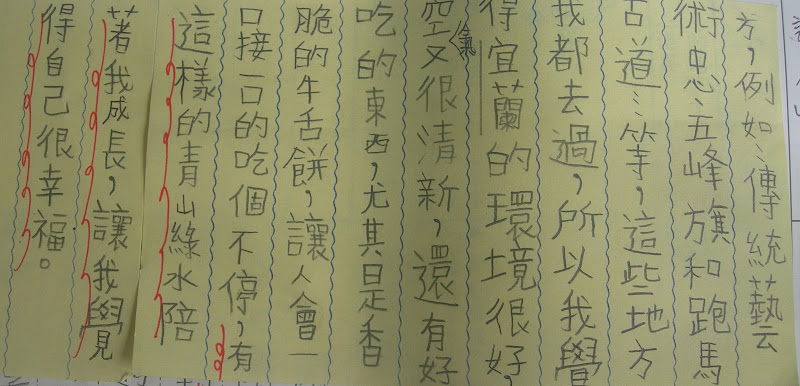 方，例如：傳統藝
術中心、五峰旗和跑馬
古道…等，這些地方
我都去過，所以我覺
得宜蘭的環境很好，
空氣又很清新，還有好
吃的東西，尤其是香
脆的牛舌餅，讓人會一
口接一口的吃個不停，有
這樣的青山綠水陪
著我成長，讓我覺
得自己很幸福。